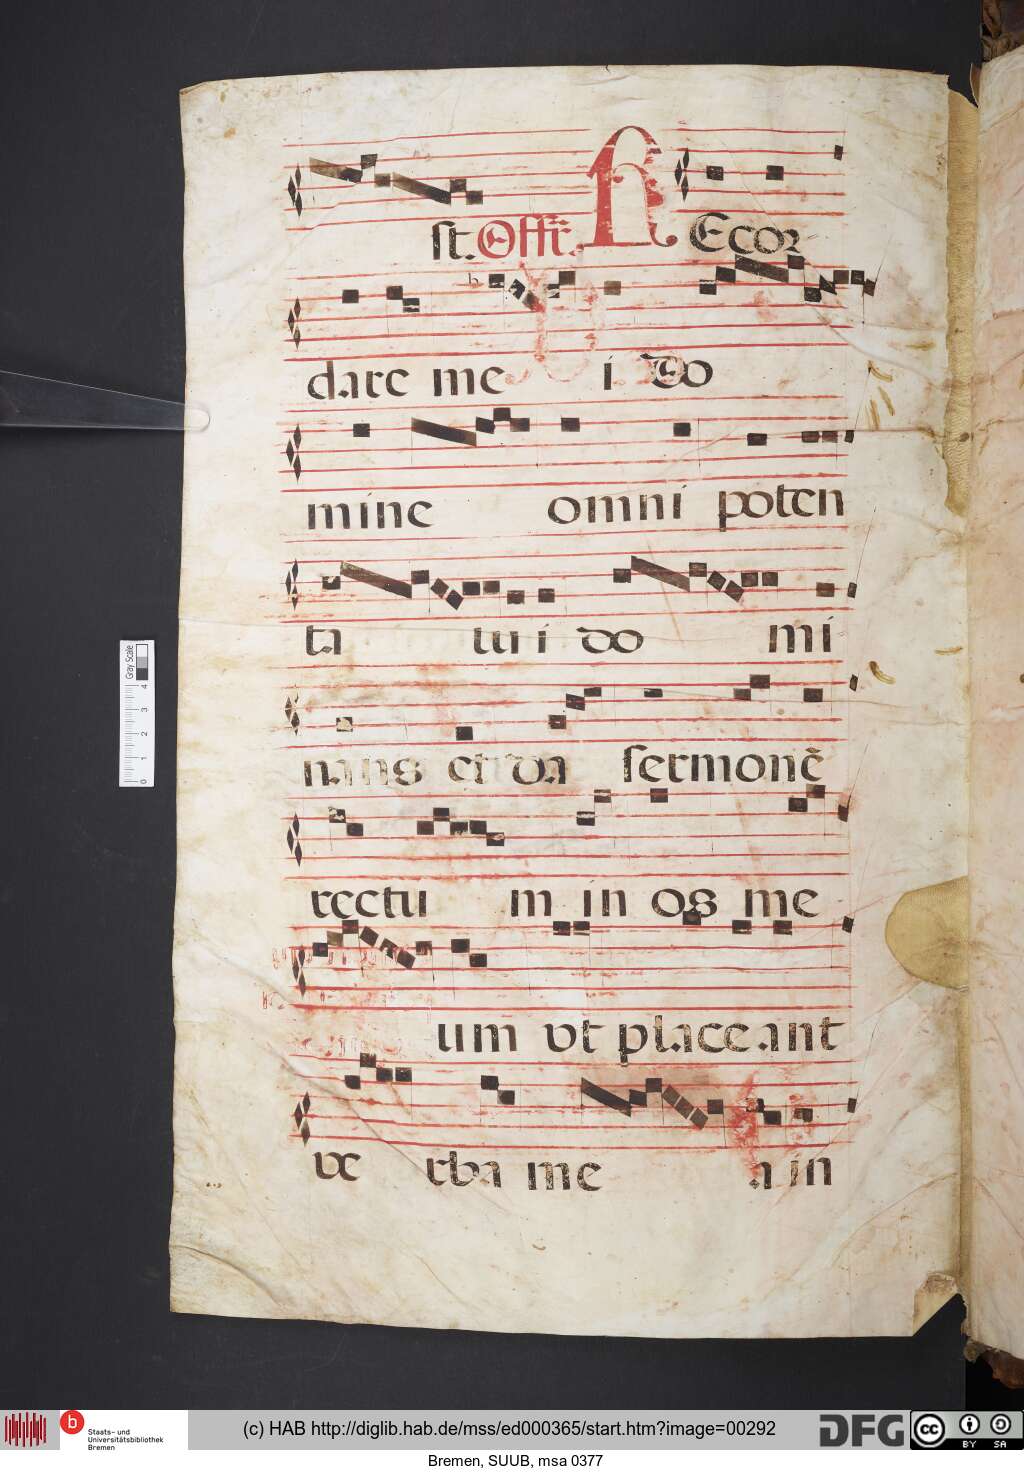 st. Offr̃. R Ecor
dare me i do
mine omni poten
ta tui do mi
nans et da sermonē
rectu m in os me
um vt placeant
ve rba me a in
Gray Scale
4
3
2
1
0
b
Staats- und
Universitätsbibliothek
Bremen
(c) HAB http://diglib.hab.de/mss/ed000365/start.htm?image=00292
DFG
CC BY SA
Bremen, SUUB, msa 0377